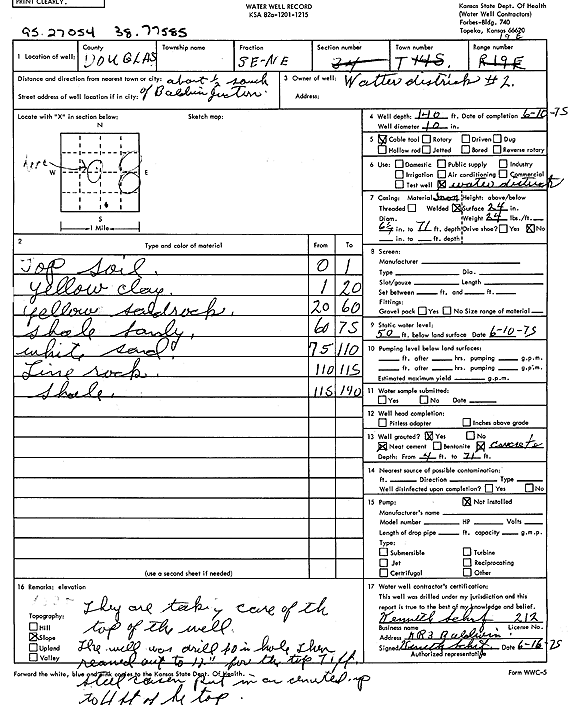 PRINT CLEARLY.
WATER WELL RECORD
KSA 82a-1201-1215
Kansas State Dept. Of Health
(Water Well Contractors)
Forbes-Bldg. 740
Topeka, Kansas 66620
95.27054 38.77585
1 Location of well: County DOUGLAS Township name Fraction SE-NE Section number Town number T 14S. Range number R19E 19E
Distance and direction from nearest town or city: about ½ south
Street address of well location if in city: of Baldwin Juction.
3 Owner of well: Watter district #2.
Address:
Locate with "X" in section below: Sketch map:
N
here
W E
S
1 Mile
4 Well depth: 140 ft. Date of completion 6-10-75
Well diameter 10 in.
5 Cable tool Rotary Driven Dug
Hollow rod Jetted Bored Reverse rotary
6 Use: Domestic Public supply Industry
Irrigation Air conditioning Commercial
Test well water district
7 Casing: Material Height: above/below
Threaded Welded Surface 24 in.
Diam. Weight 24 lbs./ft.
6⅝ in. to 71 ft. depth Drive shoe? Yes No
in. to ft. depth
2 Type and color of material From To
Top Soil. 0 1
yellow clay. 1 20
yellow sandrock. 20 60
shale sandy, 60 75
white sand 75 110
Lime rock. 110 115
shale. 115 140
8 Screen:
Manufacturer
Type Dia.
Slot/gauze Length
Set between ft. and ft.
Fittings:
Gravel pack Yes No Size range of material
9 Static water level:
50 ft. below land surface Date 6-10-75
10 Pumping level below land surfaces:
ft. after hrs. pumping g.p.m.
ft. after hrs. pumping g.p.m.
Estimated maximum yield g.p.m.
11 Water sample submitted:
Yes No Date
12 Well head completion:
Pitless adapter Inches above grade
13 Well grouted? Yes No
Neat cement Bentonite Concrete
Depth: From 4 ft. to 71 ft.
14 Nearest source of possible contamination:
ft. Direction Type
Well disinfected upon completion? Yes No
15 Pump: Not installed
Manufacturer's name
Model number HP Volts
Length of drop pipe ft. capacity g.m.p.
Type:
Submersible Turbine
Jet Reciprocating
Centrifugal Other
(use a second sheet if needed)
16 Remarks: elevation
Topography:
Hill
Slope
Upland
Valley
They are taking care of the
top of the well.
The well was drill 10 in hole then
reamed out to 12" for the top 71 ft.
steel casen put in an cemented up
to 4 ft of the top.
17 Water well contractor's certification:
This well was drilled under my jurisdiction and this
report is true to the best of my knowledge and belief.
Kenneth 212
Business name License No.
Address RR3 Baldwin
Signed Kenneth Date 6-16-75
Authorized representative
Forward the white, blue and pink copies to the Kansas State Dept. Of Health.
Form WWC-5